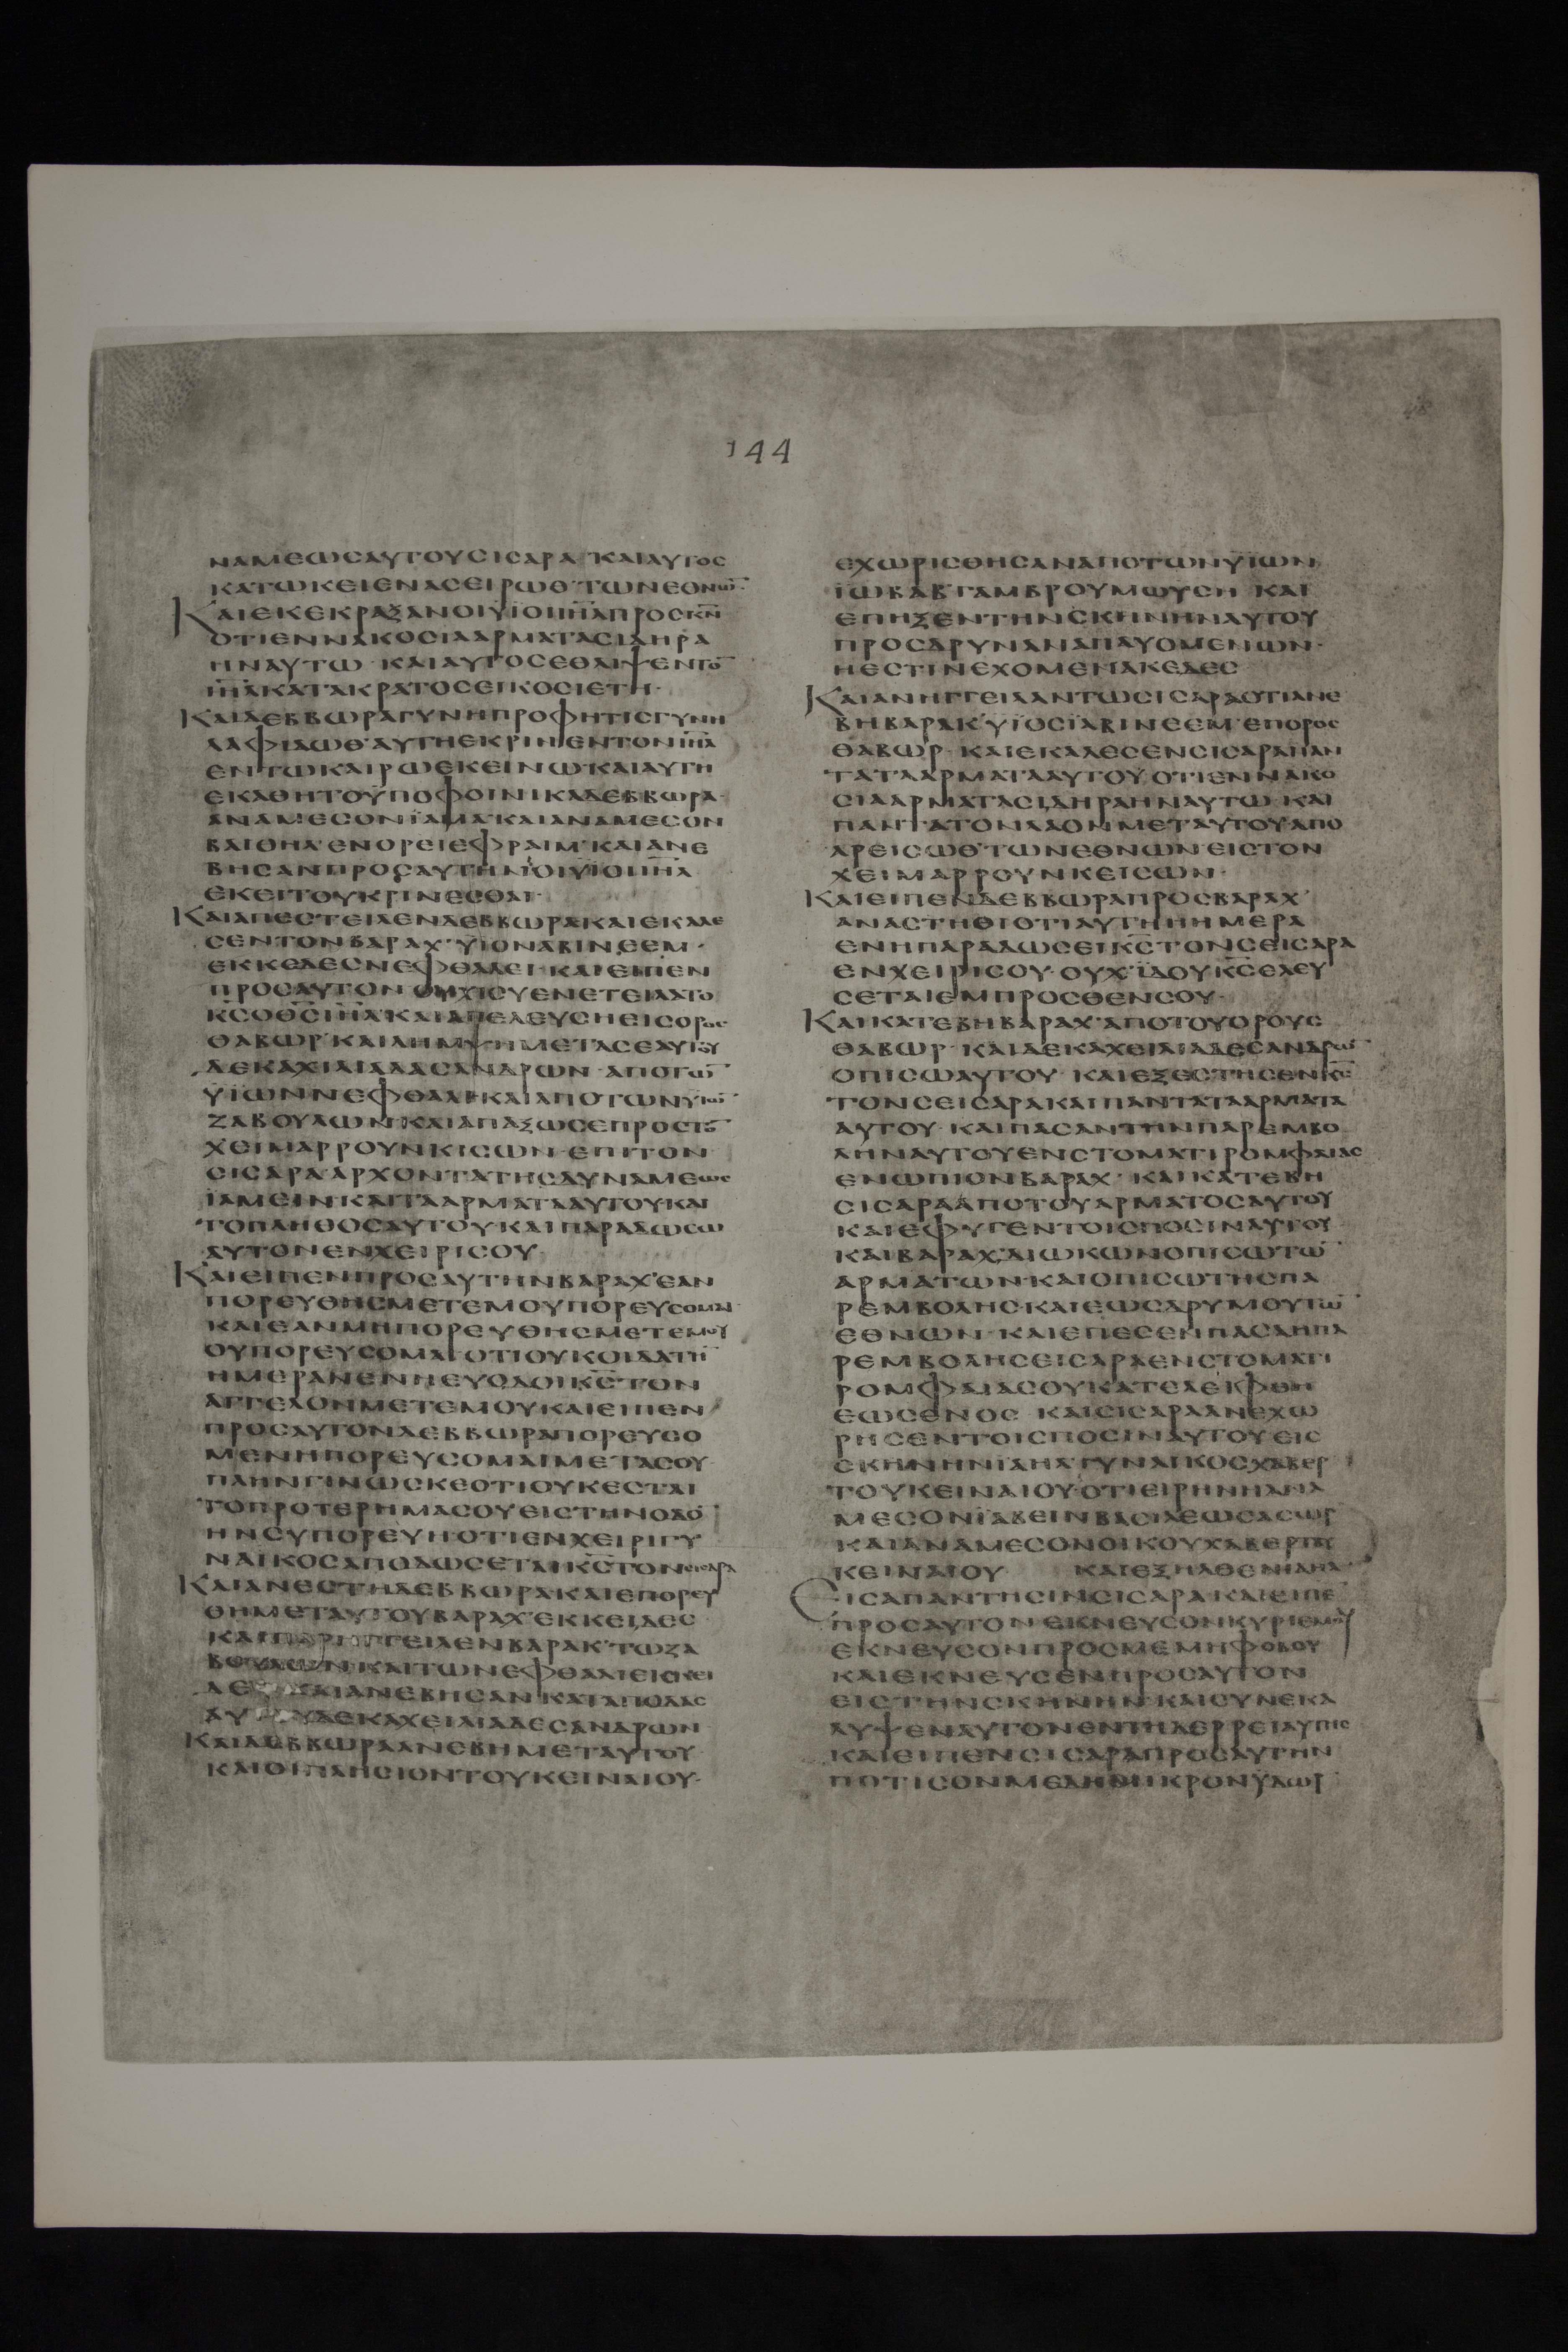 144
ΝΑΜΕΩΣΑΥΤΟΥΣΙΣΑΡΑ ΚΑΙΑΥΤΟΣ
ΚΑΤΩΚΕΙΕΝΑΣΕΙΡΩΘ ΤΩΝΕΘΝΩ̄
ΚΑΙΕΚΕΚΡΑΞΑΝΟΙΥΪΟΙΙΗ̄Λ̄ΠΡΟΣΚ̄Ν̄
ΟΤΙΕΝΝΑΚΟΣΙΑΑΡΜΑΤΑΣΙΔΗΡΑ
ΗΝΑΥΤΩ ΚΑΙΑΥΤΟΣΕΘΛΙΨΕΝΤΟ̄
ΙΗ̄Λ̄ΚΑΤΑΚΡΑΤΟΣΕΙΚΟΣΙΕΤΗ·
ΚΑΙΔΕΒΒΩΡΑΓΥΝΗΠΡΟΦΗΤΙΣΓΥΝΗ
ΛΑΦΙΔΩΘ ΑΥΤΗΕΚΡΙΝΕΝΤΟΝΙΗ̄Λ̄
ΕΝΤΩΚΑΙΡΩΕΚΕΙΝΩ ΚΑΙΑΥΤΗ
ΕΚΑΘΗΤΟΫΠΟΦΟΙΝΙΚΑΔΕΒΒΩΡΑ·
ΑΝΑΜΕΣΟΝΪΑΜΑ ΚΑΙΑΝΑΜΕΣΟΝ
ΒΑΙΘΗΛ ΕΝΟΡΕΙΕΦΡΑΙΜ ΚΑΙΑΝΕ
ΒΗΣΑΝΠΡΟΣΑΥΤΗΝΟΙΥΪΟΙΙΗ̄Λ̄
ΕΚΕΙΤΟΥΚΡΙΝΕΣΘΑΙ·
ΚΑΙΑΠΕΣΤΕΙΛΕΝΔΕΒΒΩΡΑΚΑΙΕΚΑΛΕ
ΣΕΝΤΟΝΒΑΡΑΧ ΥΪΟΝΑΒΙΝΕΕΜ·
ΕΚΚΕΔΕΣΝΕΦΘΑΛΕΙ ΚΑΙΕΙΠΕΝ
ΠΡΟΣΑΥΤΟΝ ΟΥΧΙΣΥΕΝΕΤΕΙΛΑΤΟ
Κ̄Σ̄ΟΘ̄Σ̄ΙΗ̄Λ̄ ΚΑΙΑΠΕΛΕΥΣΗΕΙΣΟΡΟΣ
ΘΑΒΩΡ ΚΑΙΛΗΜΨΗΜΕΤΑΣΕΑΥΤΟΥ
ΔΕΚΑΧΙΛΙΑΔΑΣΑΝΔΡΩΝ ΑΠΟΤΩ̄
ΥΪΩΝΝΕΦΘΑΛΙ ΚΑΙΑΠΟΤΩΝΥΙΩ̄
ΖΑΒΟΥΛΩΝ ΚΑΙΑΠΑΞΩΣΕΠΡΟΣΤΟ̄
ΧΕΙΜΑΡΡΟΥΝΚΙΣΩΝ ΕΠΙΤΟΝ
ΣΙΣΑΡΑ ΑΡΧΟΝΤΑΤΗΣΔΥΝΑΜΕΩΣ
ΪΑΜΕΙΝ ΚΑΙΤΑΑΡΜΑΤΑΑΥΤΟΥΚΑΙ
ΤΟΠΛΗΘΟΣΑΥΤΟΥ ΚΑΙΠΑΡΑΔΩΣΩ
ΑΥΤΟΝΕΝΧΕΙΡΙΣΟΥ·
ΚΑΙΕΙΠΕΝΠΡΟΣΑΥΤΗΝΒΑΡΑΧ ΕΑΝ
ΠΟΡΕΥΘΗΣΜΕΤΕΜΟΥΠΟΡΕΥΣΟΜΑΙ·
ΚΑΙΕΑΝΜΗΠΟΡΕΥΘΗΣΜΕΤΕΜΟΥ
ΟΥΠΟΡΕΥΣΟΜΑΙ ΟΤΙΟΥΚΟΙΔΑΤΗ̄
ΗΜΕΡΑΝΕΝΗΕΥΟΔΟΙΚ̄Σ̄ΤΟΝ
ΑΓΓΕΛΟΝΜΕΤΕΜΟΥΚΑΙΕΙΠΕΝ
ΠΡΟΣΑΥΤΟΝΔΕΒΒΩΡΑΠΟΡΕΥΣΟ
ΜΕΝΗΠΟΡΕΥΣΟΜΑΙΜΕΤΑΣΟΥ
ΠΛΗΝΓΙΝΩΣΚΕΟΤΙΟΥΚΕΣΤΑΙ
ΤΟΠΡΟΤΕΡΗΜΑΣΟΥΕΙΣΤΗΝΟΔΟ̄
ΗΝΣΥΠΟΡΕΥΗΟΤΙΕΝΧΕΙΡΙΓΥ
ΝΑΙΚΟΣΑΠΟΔΩΣΕΤΑΙΚ̄Σ̄ΤΟΝΣΙΣΑΡΑ
ΚΑΙΑΝΕΣΤΗΔΕΒΒΩΡΑΚΑΙΕΠΟΡΕΥ
ΘΗΜΕΤΑΥΤΟΥΒΑΡΑΧ ΕΚΚΕΙΔΕΣ
ΚΑΙΠΑΡΗΓΓΕΙΛΕΝΒΑΡΑΚ ΤΩΖΑ
ΒΟΥΛΩΝ ΚΑΙΤΩΝΕΦΘΑΛΙΕΙΣΚΕΙ
ΔΕΣ ΚΑΙΑΝΕΒΗΣΑΝ ΚΑΤΑΠΟΔΑΣ
ΑΥΤΟΥΔΕΚΑΧΕΙΛΙΑΔΕΣΑΝΔΡΩΝ
ΚΑΙΔΕΒΒΩΡΑΑΝΕΒΗΜΕΤΑΥΤΟΥ
ΚΑΙΟΙΠΛΗΣΙΟΝΤΟΥΚΕΙΝΑΙΟΥ·
ΕΧΩΡΙΣΘΗΣΑΝΑΠΟΤΩΝΥΪΩΝ
ΪΩΒΑΒ ΓΑΜΒΡΟΥΜΩΥΣΗ ΚΑΙ
ΕΠΗΞΕΝΤΗΝΣΚΗΝΗΝΑΥΤΟΥ
ΠΡΟΣΔΡΥΝΑΝΑΠΑΥΟΜΕΝΩΝ·
ΗΕΣΤΙΝΕΧΟΜΕΝΑΚΕΔΕΣ
ΚΑΙΑΝΗΓΓΕΙΛΑΝΤΩΣΙΣΑΡΑΟΤΙΑΝΕ
ΒΗΒΑΡΑΚ ΥΪΟΣΪΑΒΙΝΕΕΜ ΕΠΟΡΟΣ
ΘΑΒΩΡ· ΚΑΙΕΚΑΛΕΣΕΝΣΙΣΑΡΑΠΑΝ
ΤΑΤΑΑΡΜΑΤΑΑΥΤΟΥ ΟΤΙΕΝΝΑΚΟ
ΣΙΑΑΡΜΑΤΑΣΙΔΗΡΑΗΝΑΥΤΩ ΚΑΙ
ΠΑΝΤΑΤΟΝΛΑΟΝΜΕΤΑΥΤΟΥΑΠΟ
ΑΡΕΙΣΩΘ ΤΩΝΕΘΝΩΝ ΕΙΣΤΟΝ
ΧΕΙΜΑΡΡΟΥΝΚΕΙΣΩΝ·
ΚΑΙΕΙΠΕΝΔΕΒΒΩΡΑΠΡΟΣΒΑΡΑΧ
ΑΝΑΣΤΗΘΙΟΤΙΑΥΤΗΗΗΜΕΡΑ
ΕΝΗΠΑΡΑΔΩΣΕΙΚ̄Σ̄ΤΟΝΣΕΙΣΑΡΑ
ΕΝΧΕΙΡΙΣΟΥ· ΟΥΧ ΪΔΟΥΚ̄Σ̄ΕΛΕΥ
ΣΕΤΑΙΕΜΠΡΟΣΘΕΝΣΟΥ·
ΚΑΙΚΑΤΕΒΗΒΑΡΑΧ ΑΠΟΤΟΥΟΡΟΥΣ
ΘΑΒΩΡ· ΚΑΙΔΕΚΑΧΕΙΛΙΑΔΕΣΑΝΔΡΩ̄
ΟΠΙΣΩΑΥΤΟΥ· ΚΑΙΕΞΕΣΤΗΣΕΝΚ̄Σ̄
ΤΟΝΣΕΙΣΑΡΑΚΑΙΠΑΝΤΑΤΑΑΡΜΑΤΑ
ΑΥΤΟΥ· ΚΑΙΠΑΣΑΝΤΗΝΠΑΡΕΜΒΟ
ΛΗΝΑΥΤΟΥΕΝΣΤΟΜΑΤΙΡΟΜΦΑΙΑΣ
ΕΝΩΠΙΟΝΒΑΡΑΧ· ΚΑΙΚΑΤΕΒΗ
ΣΙΣΑΡΑΑΠΟΤΟΥΑΡΜΑΤΟΣΑΥΤΟΥ
ΚΑΙΕΦΥΓΕΝΤΟΙΣΠΟΣΙΝΑΥΤΟΥ
ΚΑΙΒΑΡΑΧΔΙΩΚΩΝΟΠΙΣΩΤΩ̄
ΑΡΜΑΤΩΝΚΑΙΟΠΙΣΩΤΗΣΠΑ
ΡΕΜΒΟΛΗΣ ΚΑΙΕΩΣΔΡΥΜΟΥΤΩ̄
ΕΘΝΩΝ· ΚΑΙΕΠΕΣΕΝΠΑΣΑΗΠΑ
ΡΕΜΒΟΛΗΣΕΙΣΑΡΑΕΝΣΤΟΜΑΤΙ
ΡΟΜΦΑΙΑΣΟΥΚΑΤΕΛΕΙΦΘΗ
ΕΩΣΕΝΟΣ ΚΑΙΣΙΣΑΡΑΑΝΕΧΩ
ΡΗΣΕΝΤΟΙΣΠΟΣΙΝΑΥΤΟΥΕΙΣ
ΣΚΗΝΗΝΪΑΗΛ ΓΥΝΑΙΚΟΣΧΑΒΕΡ
ΤΟΥΚΕΙΝΑΙΟΥ·ΟΤΙΕΙΡΗΝΗΑΝΑ
ΜΕΣΟΝΪΑΒΕΙΝΒΑΣΙΛΕΩΣΑΣΩΡ
ΚΑΙΑΝΑΜΕΣΟΝΟΙΚΟΥΧΑΒΕΡΤΟΥ
ΚΕΙΝΑΙΟΥ ΚΑΙΕΞΗΛΘΕΝΙΑΗΛ
ΕΙΣΑΠΑΝΤΗΣΙΝΣΙΣΑΡΑ ΚΑΙΕΙΠΕ̄
ΠΡΟΣΑΥΤΟΝ ΕΚΝΕΥΣΟΝΚΥΡΙΕΜΟΥ
ΕΚΝΕΥΣΟΝΠΡΟΣΜΕΜΗΦΟΒΟΥ
ΚΑΙΕΚΝΕΥΣΕΝΠΡΟΣΑΥΤΟΝ
ΕΙΣΤΗΝΣΚΗΝΗΝ ΚΑΙΣΥΝΕΚΑ
ΛΥΨΕΝΑΥΤΟΝΕΝΤΗΔΕΡΡΕΙΑΥΤΗΣ
ΚΑΙΕΙΠΕΝΣΙΣΑΡΑΠΡΟΣΑΥΤΗΝ
ΠΟΤΙΣΟΝΜΕΔΗΜΙΚΡΟΝΫΔΩΡ